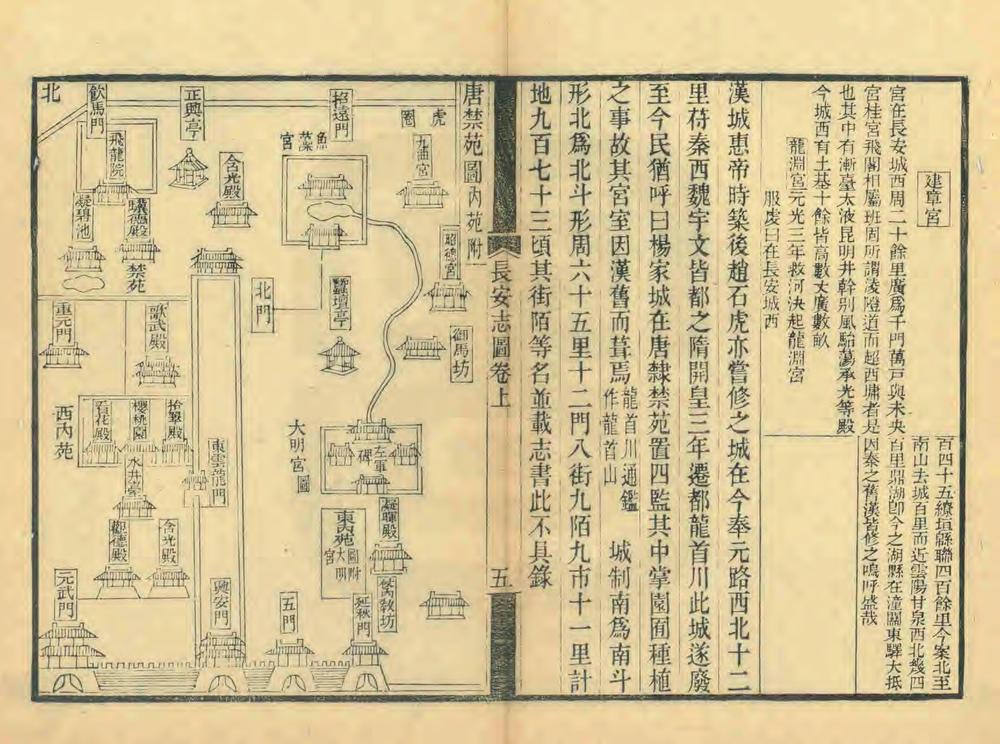 百四十五繚垣緜聯四百餘里今案北至
南山去城百里而近雲陽甘泉西北幾四
百里鼎湖卽今之湖縣在潼關東驛大抵
因秦之舊漢皆修之嗚呼盛哉
建章宮
宮在長安城西周二十餘里廣爲千門萬戸與未央
宮桂宮飛閣相屬班固所謂淩隥道而超西墉者是
也其中有漸臺太液昆明井幹別風駘蕩承光等殿
今城西有土基十餘皆高數丈廣數畝
龍淵宮元光三年救河決起龍淵宮
服虔曰在長安城西
漢城惠帝時築後趙石虎亦嘗修之城在今奉元路西北十二
里苻秦西魏宇文皆都之隋開皇三年遷都龍首川此城遂廢
至今民猶呼曰楊家城在唐隸禁苑置四監其中掌園囿種植
之事故其宮室因漢舊而葺焉龍首川通鑑作龍首山城制南爲南斗
形北爲北斗形周六十五里十二門八街九陌九市十一里計
地九百七十三頃其街陌等名並載志書此不具錄
長安志圖卷上
五
唐禁苑圖內苑附
虎圈
九曲宮
昭德宮
御馬坊
招遠門
魚藻宮
蠶壇亭
北門
左軍碑
大明宮圖
凝暉殿
東內苑
圖附大明宮
教坊
延秋門
五門
正興亭
含光殿
飲馬門
北
飛龍院
驥德殿
凝碧池
禁苑
重元門
歌武殿
拾翠殿
櫻桃園
看花殿
西內苑
冰井臺
東雲龍門
含光殿
觀德殿
興安門
元武門